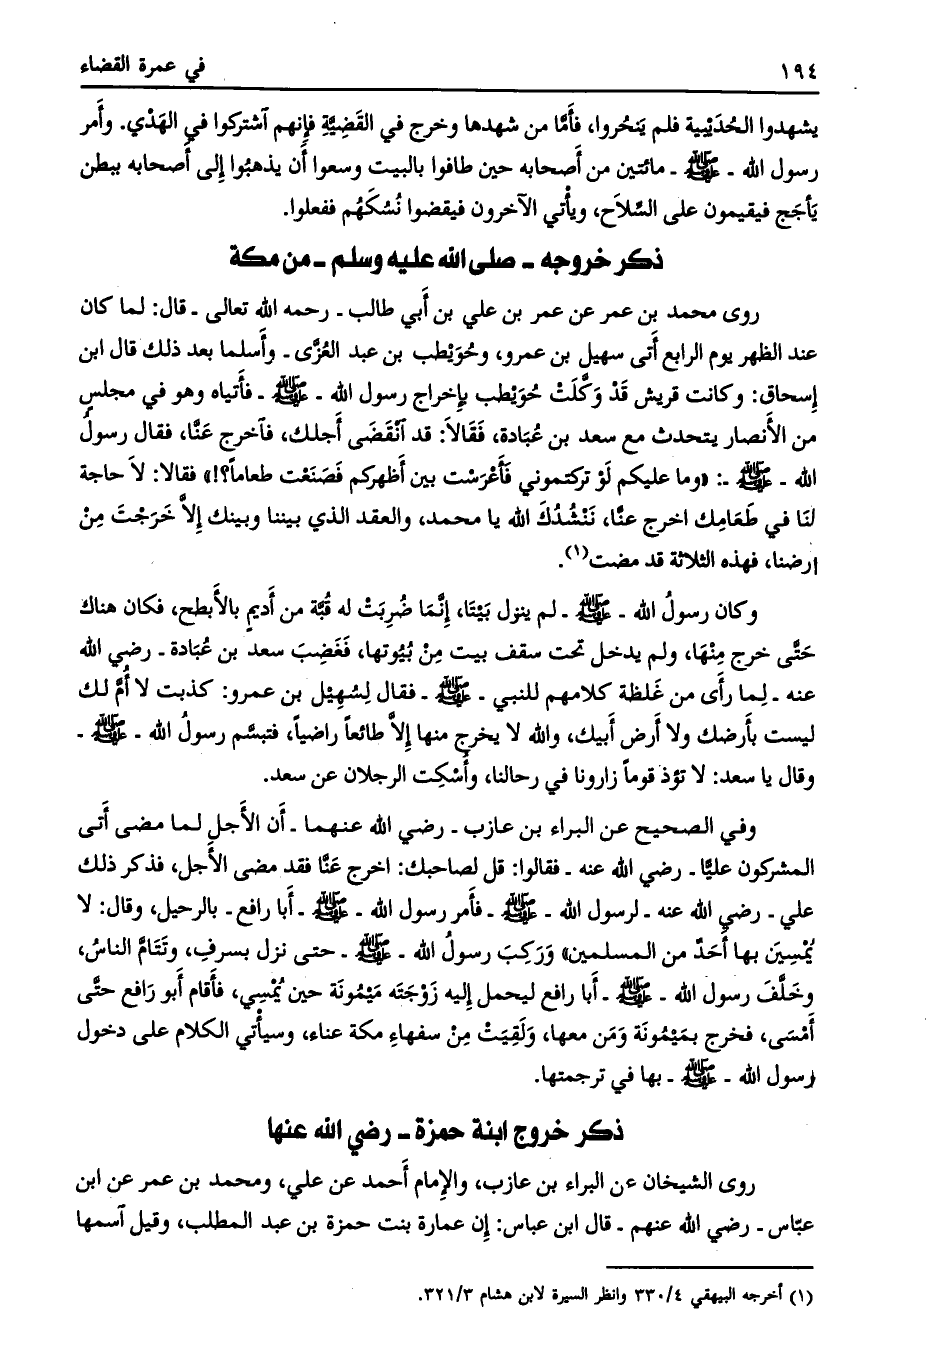 ١٩٤
في عمرة القضاء
يشهدوا الحُدَيْبِية فلم يَنحُروا، فأَمَّا من شهدها وخرج في القَضِيَّةِ فإنهم آشتركوا في الهَدْي. وأَمر
رسول الله - ﷺ - مائتين من أَصحابه حين طافوا بالبيت وسعوا أَن يذهبُوا إلى أَصحابه ببطن
يَأجَج فيقيمون على السِّلاَح، ويأْتي الآخرون فيقضوا نُسُكَهُم ففعلوا.
ذكر خروجه - صلى الله عليه وسلم - من مكة
روى محمد بن عمر عن عمر بن علي بن أَبي طالب - رحمه الله تعالى - قال: لما كان
عند الظهر يوم الرابع أَتى سهيل بن عمرو، وحُوَيْطب بن عبد العُزَّى - وأَسلما بعد ذلك قال ابن
إسحاق: وكانت قريش قَدْ وَكَّلَتْ حُوَيْطب بإخراج رسول الله - ﷺ - فأَتياه وهو في مجلس
من الأَنصار يتحدث مع سعد بن عُبَادة، فَقَالاَ: قد آنْقَضَى أَجلك، فآخرج عَنَّا، فقال رسولُ
الله - ﷺ -: «وما عليكم لَوْ تركتموني فَأَعْرَسْت بين أَظهركم فَصَنَعْت طعاماً؟!» فقالا: لاَ حاجة
لنَا في طَعَامِك اخرج عنَّا، نَنْشُدُكَ الله يا محمد، والعقد الذي بيننا وبينك إِلاَّ خَرَجْتَ مِنْ
ارضنا، فهذه الثلاثة قد مضت(١).
وكان رسولُ الله - ﷺ - لم ينزل بَيْتَا، إنَّمَا ضُرِبَتْ له قُبَّة من أَديم بالأَبطح، فكان هناك
حَتَّى خرج مِنْهَا، ولم يدخل تحت سقف بيت مِنْ بُيُوتها، فَغَضِبَ سعد بن عُبَادة - رضي الله
عنه - لِما رأَى من غَلظة كلامهم للنبي - ﷺ - فقال لِسُهِيْل بن عمرو: كذبت لا أُمَّ لك
ليست بأَرضك ولا أَرض أَبيك، والله لا يخرج منها إلاَّ طائعاً راضياً، فتبسَّم رسولُ الله - ﷺ -
وقال يا سعد: لا تؤذ قوماً زارونا في رحالنا، وأُسْكِت الرجلان عن سعد.
وفي الصحيح عن البراء بن عازب - رضي الله عنهما - أَن الأَجل لما مضى أَتى
المشركون عليًّا - رضي الله عنه - فقالوا: قل لصاحبك: اخرج عَنَّا فقد مضى الأَجل، فذكر ذلك
علي - رضي الله عنه - لرسول الله - ﷺ - فأَمر رسول الله - ﷺ - أَبا رافع - بالرحيل، وقال: لا
يُمْسِيَن بها أَحَدٌ من المسلمين» وَرَكِبَ رسولُ الله - ﷺ - حتى نزل بسرفٍ، وتَتَامَّ الناسُ،
وخَلَّفَ رسول الله - ﷺ - أَبا رافع ليحمل إليه زَوْجَتَه مَيْمُونَة حين يُمْسِي، فأَقام أَبو رَافع حتَّى
أَمْسَى، فخرج بمَيْمُونَة وَمَن معها، وَلَقِيَتْ مِنْ سفهاءِ مكة عناء، وسيأْتي الكلام على دخول
رسول الله - ﷺ - بها في ترجمتها.
ذكر خروج ابنة حمزة - رضي الله عنها
روى الشيخان عن البراء بن عازب، والإمام أَحمد عن علي، ومحمد بن عمر عن ابن
عبّاس - رضي الله عنهم - قال ابن عباس: إن عمارة بنت حمزة بن عبد المطلب، وقيل آسمها
(١) أخرجه البيهقي ٣٣٠/٤ وانظر السيرة لابن هشام ٣٢١/٣.